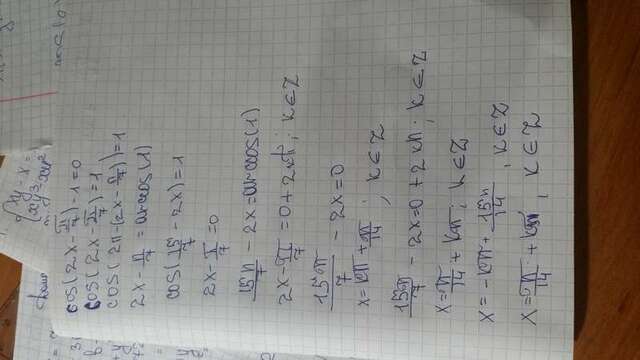 cos(2x-π/7)-1=0
cos(2x-π/7)=1
cos(2π-(2x-π/7))=1
2x-π/7=arccos(1)
cos(15π/7-2x)=1
2x-π/7=0
15π/7-2x=arccos(1)
2x-π/7=0+2kπ; k∈Z
15π/7-2x=0
x=kπ+π/14, k∈Z
15π/7-2x=0+2kπ; k∈Z
x=π/14+kπ; k∈Z
x=-kπ+15π/14, k∈Z
x=π/14+kπ, k∈Z